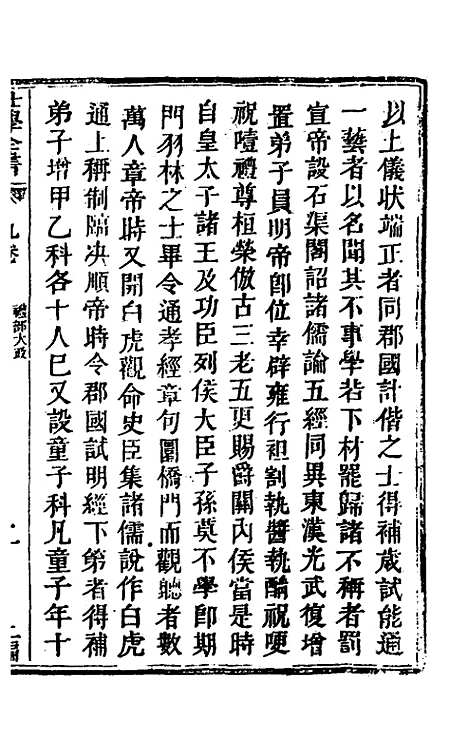 以上儀狀端正者同郡國計偕之士得補歲試能通
一藝者以名聞其不事學若下材罷歸諸不稱者罰
宣帝設石渠閣詔諸儒論五經同異東漢光武復增
置弟子員明帝卽位幸辟雍行袒割執醬執酳祝哽
祝噎禮尊桓榮倣古三老五更賜爵關內侯當是時
自皇太子諸王及功臣列侯大臣子孫莫不學卽期
門羽林之士畢令通孝經章句圜橋門而觀聽者數
萬人章帝時又開白虎觀命史臣集諸儒說作白虎
通上稱制臨决順帝時令郡國試明經下第者得補
弟子增甲乙科各十人巳又設童子科凡童子年十
九卷
禮部大政